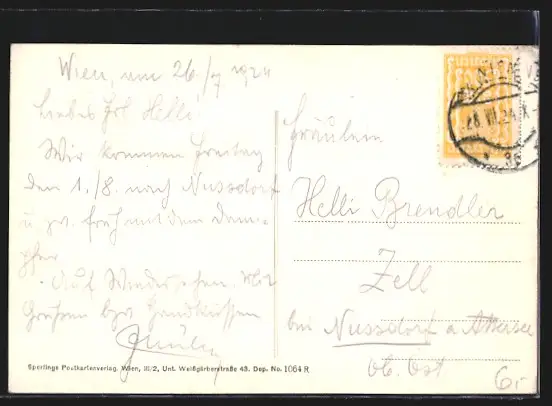 Wien, am 26./7 1924
Liebes Frl. Helli!
Wir kommen Freitag
den 1./8. nach Nussdorf
u. zw. früh mit dem Dam-
pfer.
Auf Wiedersehen. Mit
Grüssen bzw. Handküssen
Fräulein
Helli Brendler
Zell
bei Nussdorf a. Attersee
Ob. Öst
28.VII.24
6,-
Sperlings Postkartenverlag, Wien, III/2, Unt. Weißgärberstraße 43. Dep. No. 1064 R